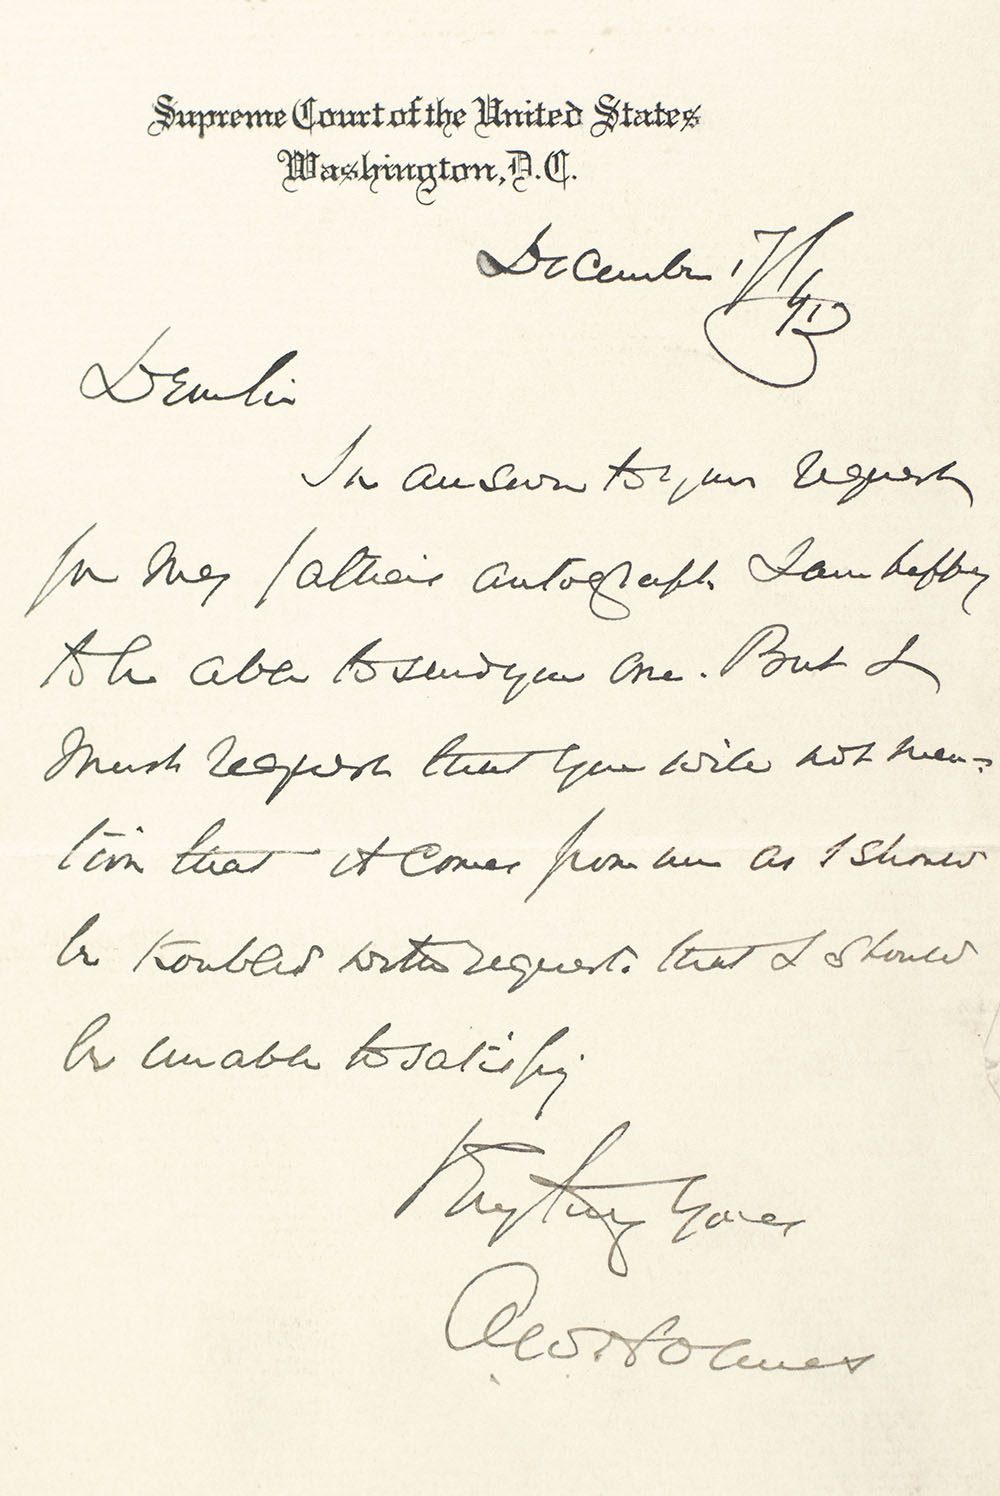 Supreme Court of the United States
Washington, D.C.
December 17/13
Dear Sir
In answer to your request
for my father's autograph I am happy
to be able to send you one. But I
must request that you will not men-
tion that it comes from me as I should
be troubled with requests that I should
be unable to satisfy
Very truly yours
O. W. Holmes